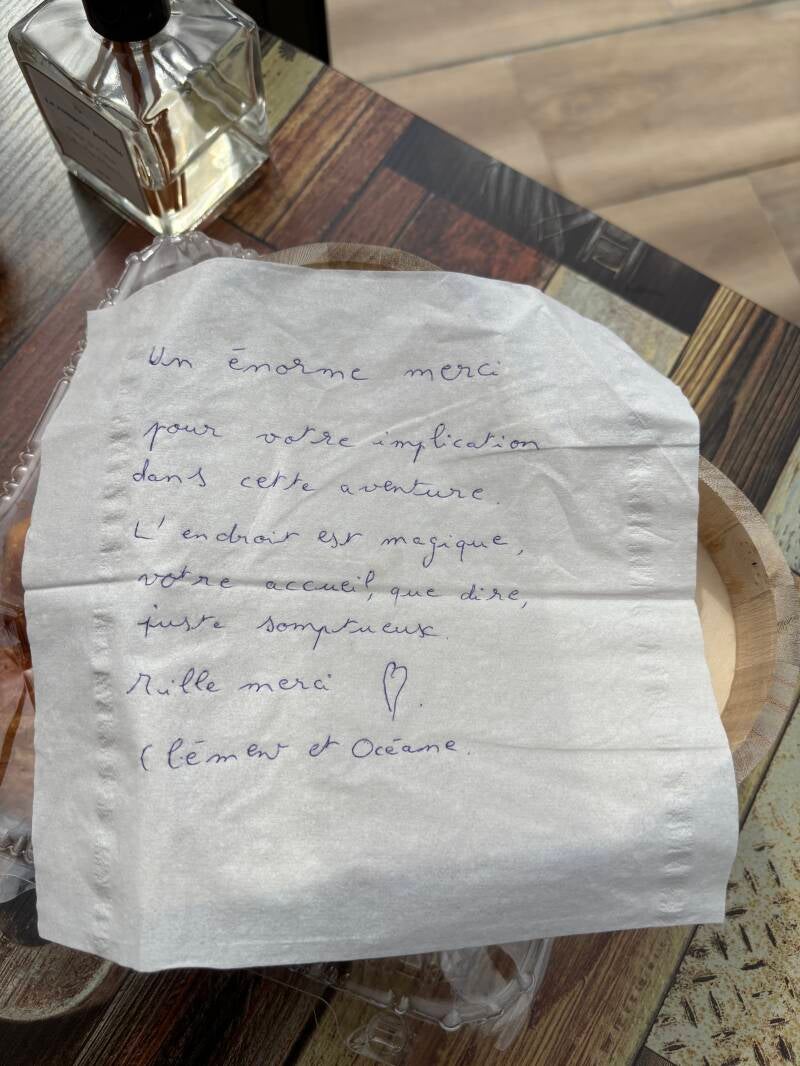 Un énorme merci
pour votre implication
dans cette aventure.
L'endroit est magique,
votre accueil, que dire,
juste somptueux.
Mille merci
Clément et Océane.